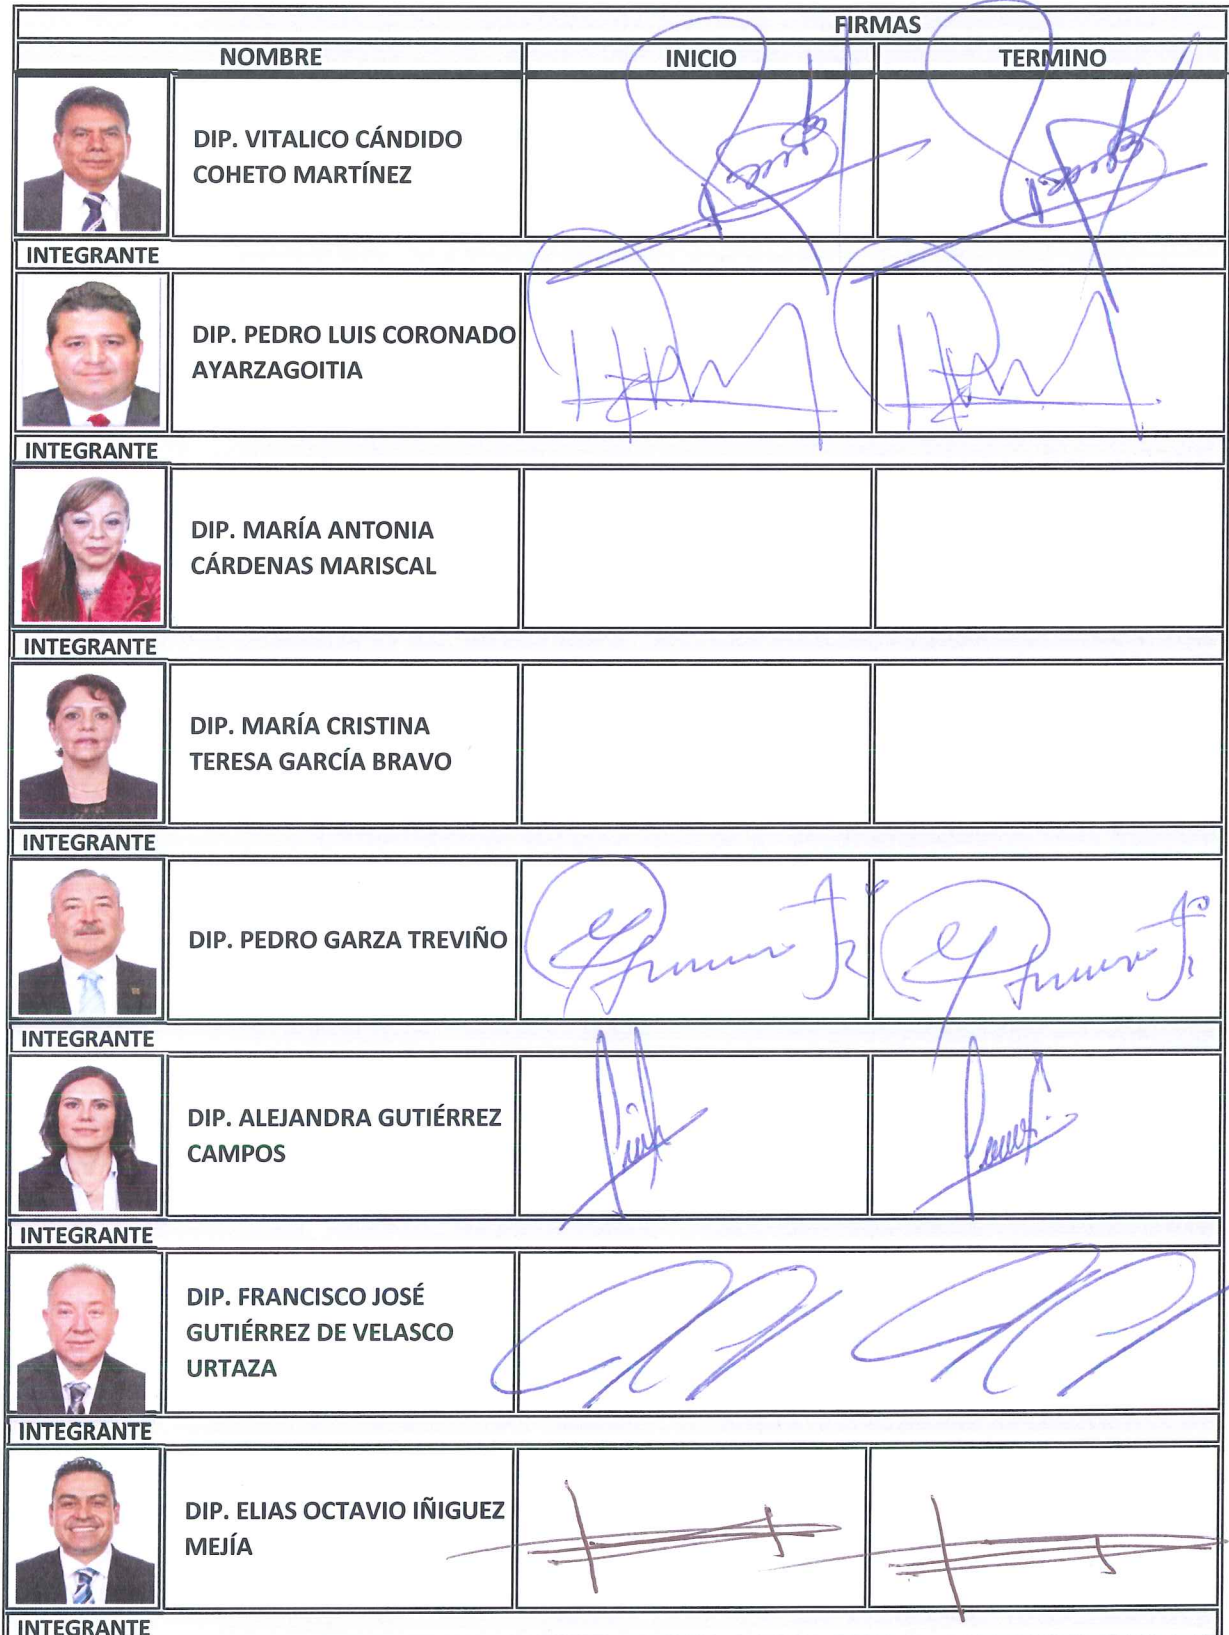 FIRMAS
NOMBRE INICIO TERMINO
DIP. VITALICO CÁNDIDO
COHETO MARTÍNEZ
INTEGRANTE
DIP. PEDRO LUIS CORONADO
AYARZAGOITIA
INTEGRANTE
DIP. MARÍA ANTONIA
CÁRDENAS MARISCAL
INTEGRANTE
DIP. MARÍA CRISTINA
TERESA GARCÍA BRAVO
INTEGRANTE
DIP. PEDRO GARZA TREVIÑO
INTEGRANTE
DIP. ALEJANDRA GUTIÉRREZ
CAMPOS
INTEGRANTE
DIP. FRANCISCO JOSÉ
GUTIÉRREZ DE VELASCO
URTAZA
INTEGRANTE
DIP. ELIAS OCTAVIO IÑIGUEZ
MEJÍA
INTEGRANTE